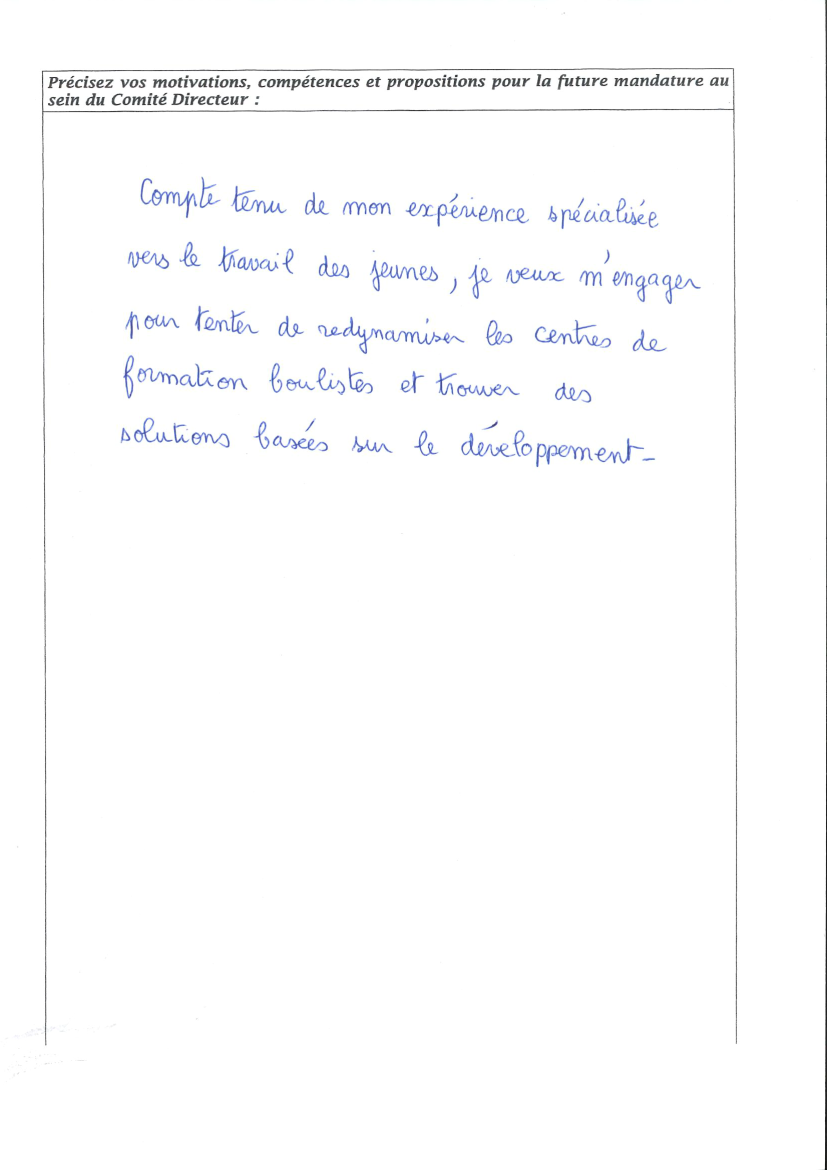 Précisez vos motivations, compétences et propositions pour la future mandature au
sein du Comité Directeur :
Compte tenu de mon expérience spécialisée
vers le travail des jeunes, je veux m'engager
pour tenter de redynamiser les centres de
formation boulistes et trouver des
solutions basées sur le développement_